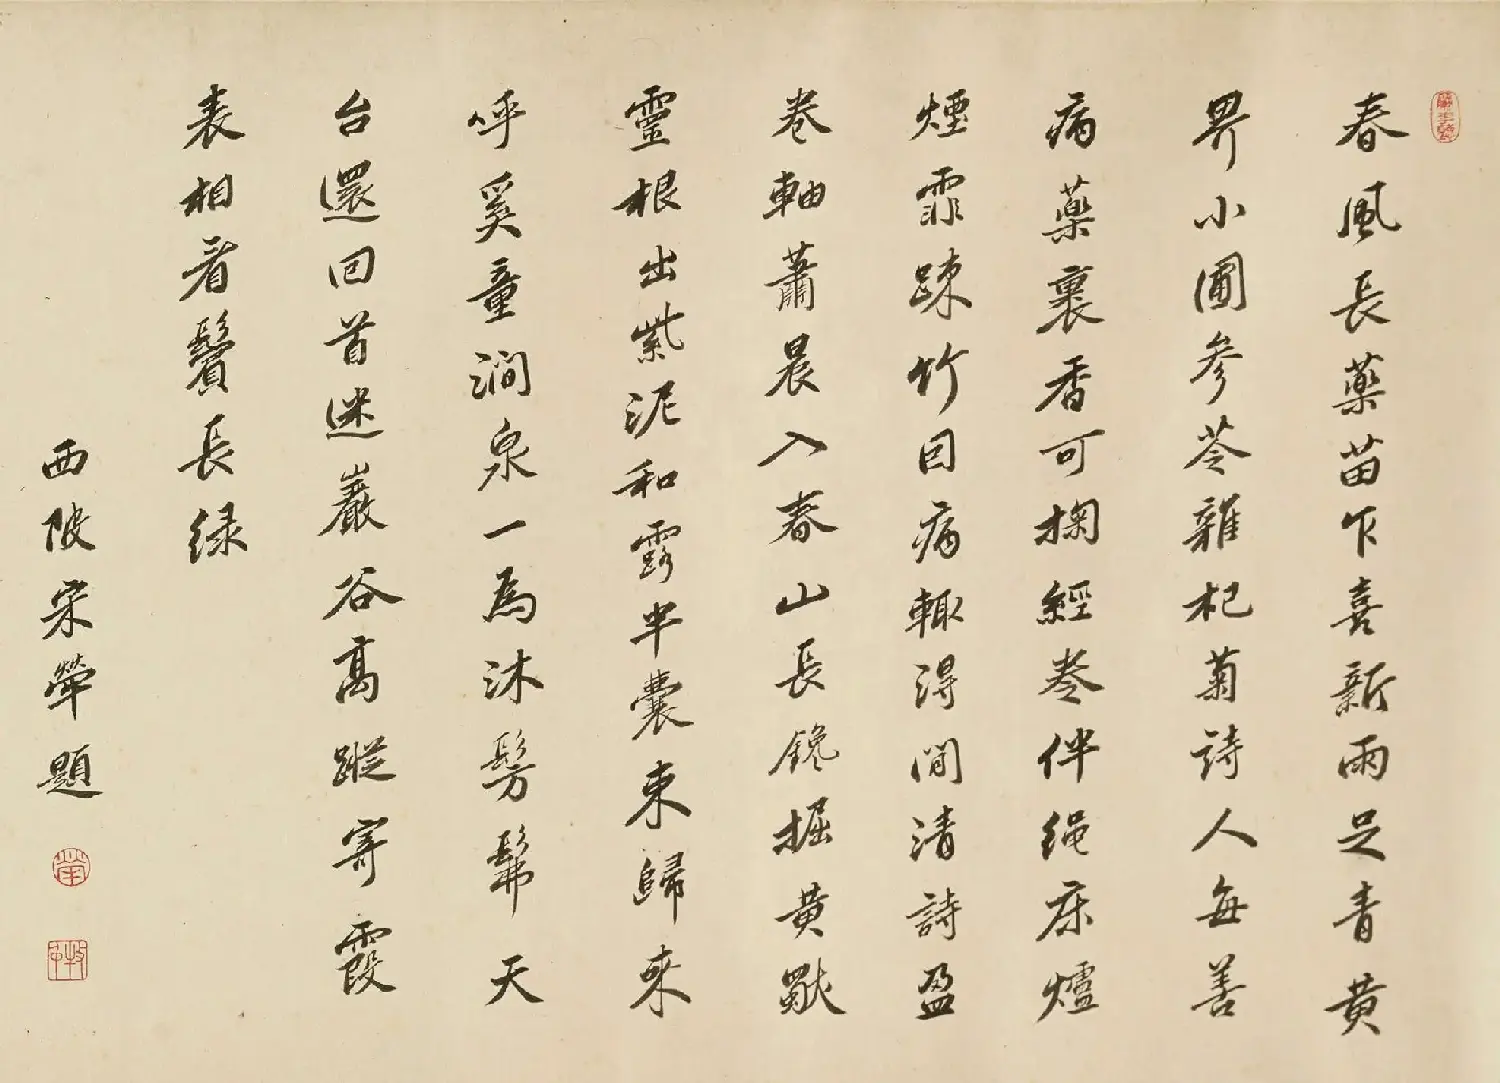 春風長藥苗乍喜新雨足青黃
界小圃參苓雜杞菊詩人每善
病藥裹香可掬經卷伴繩床爐
煙霏踈竹因病輙得閒清詩盈
卷軸蕭晨入春山長鑱掘黃獸
靈根出紫泥和露半囊束歸來
呼奚童澗泉一為沐髣髴天
台還回首迷巖谷高蹤寄霞
表相看鬢長绿
西陂宋犖題